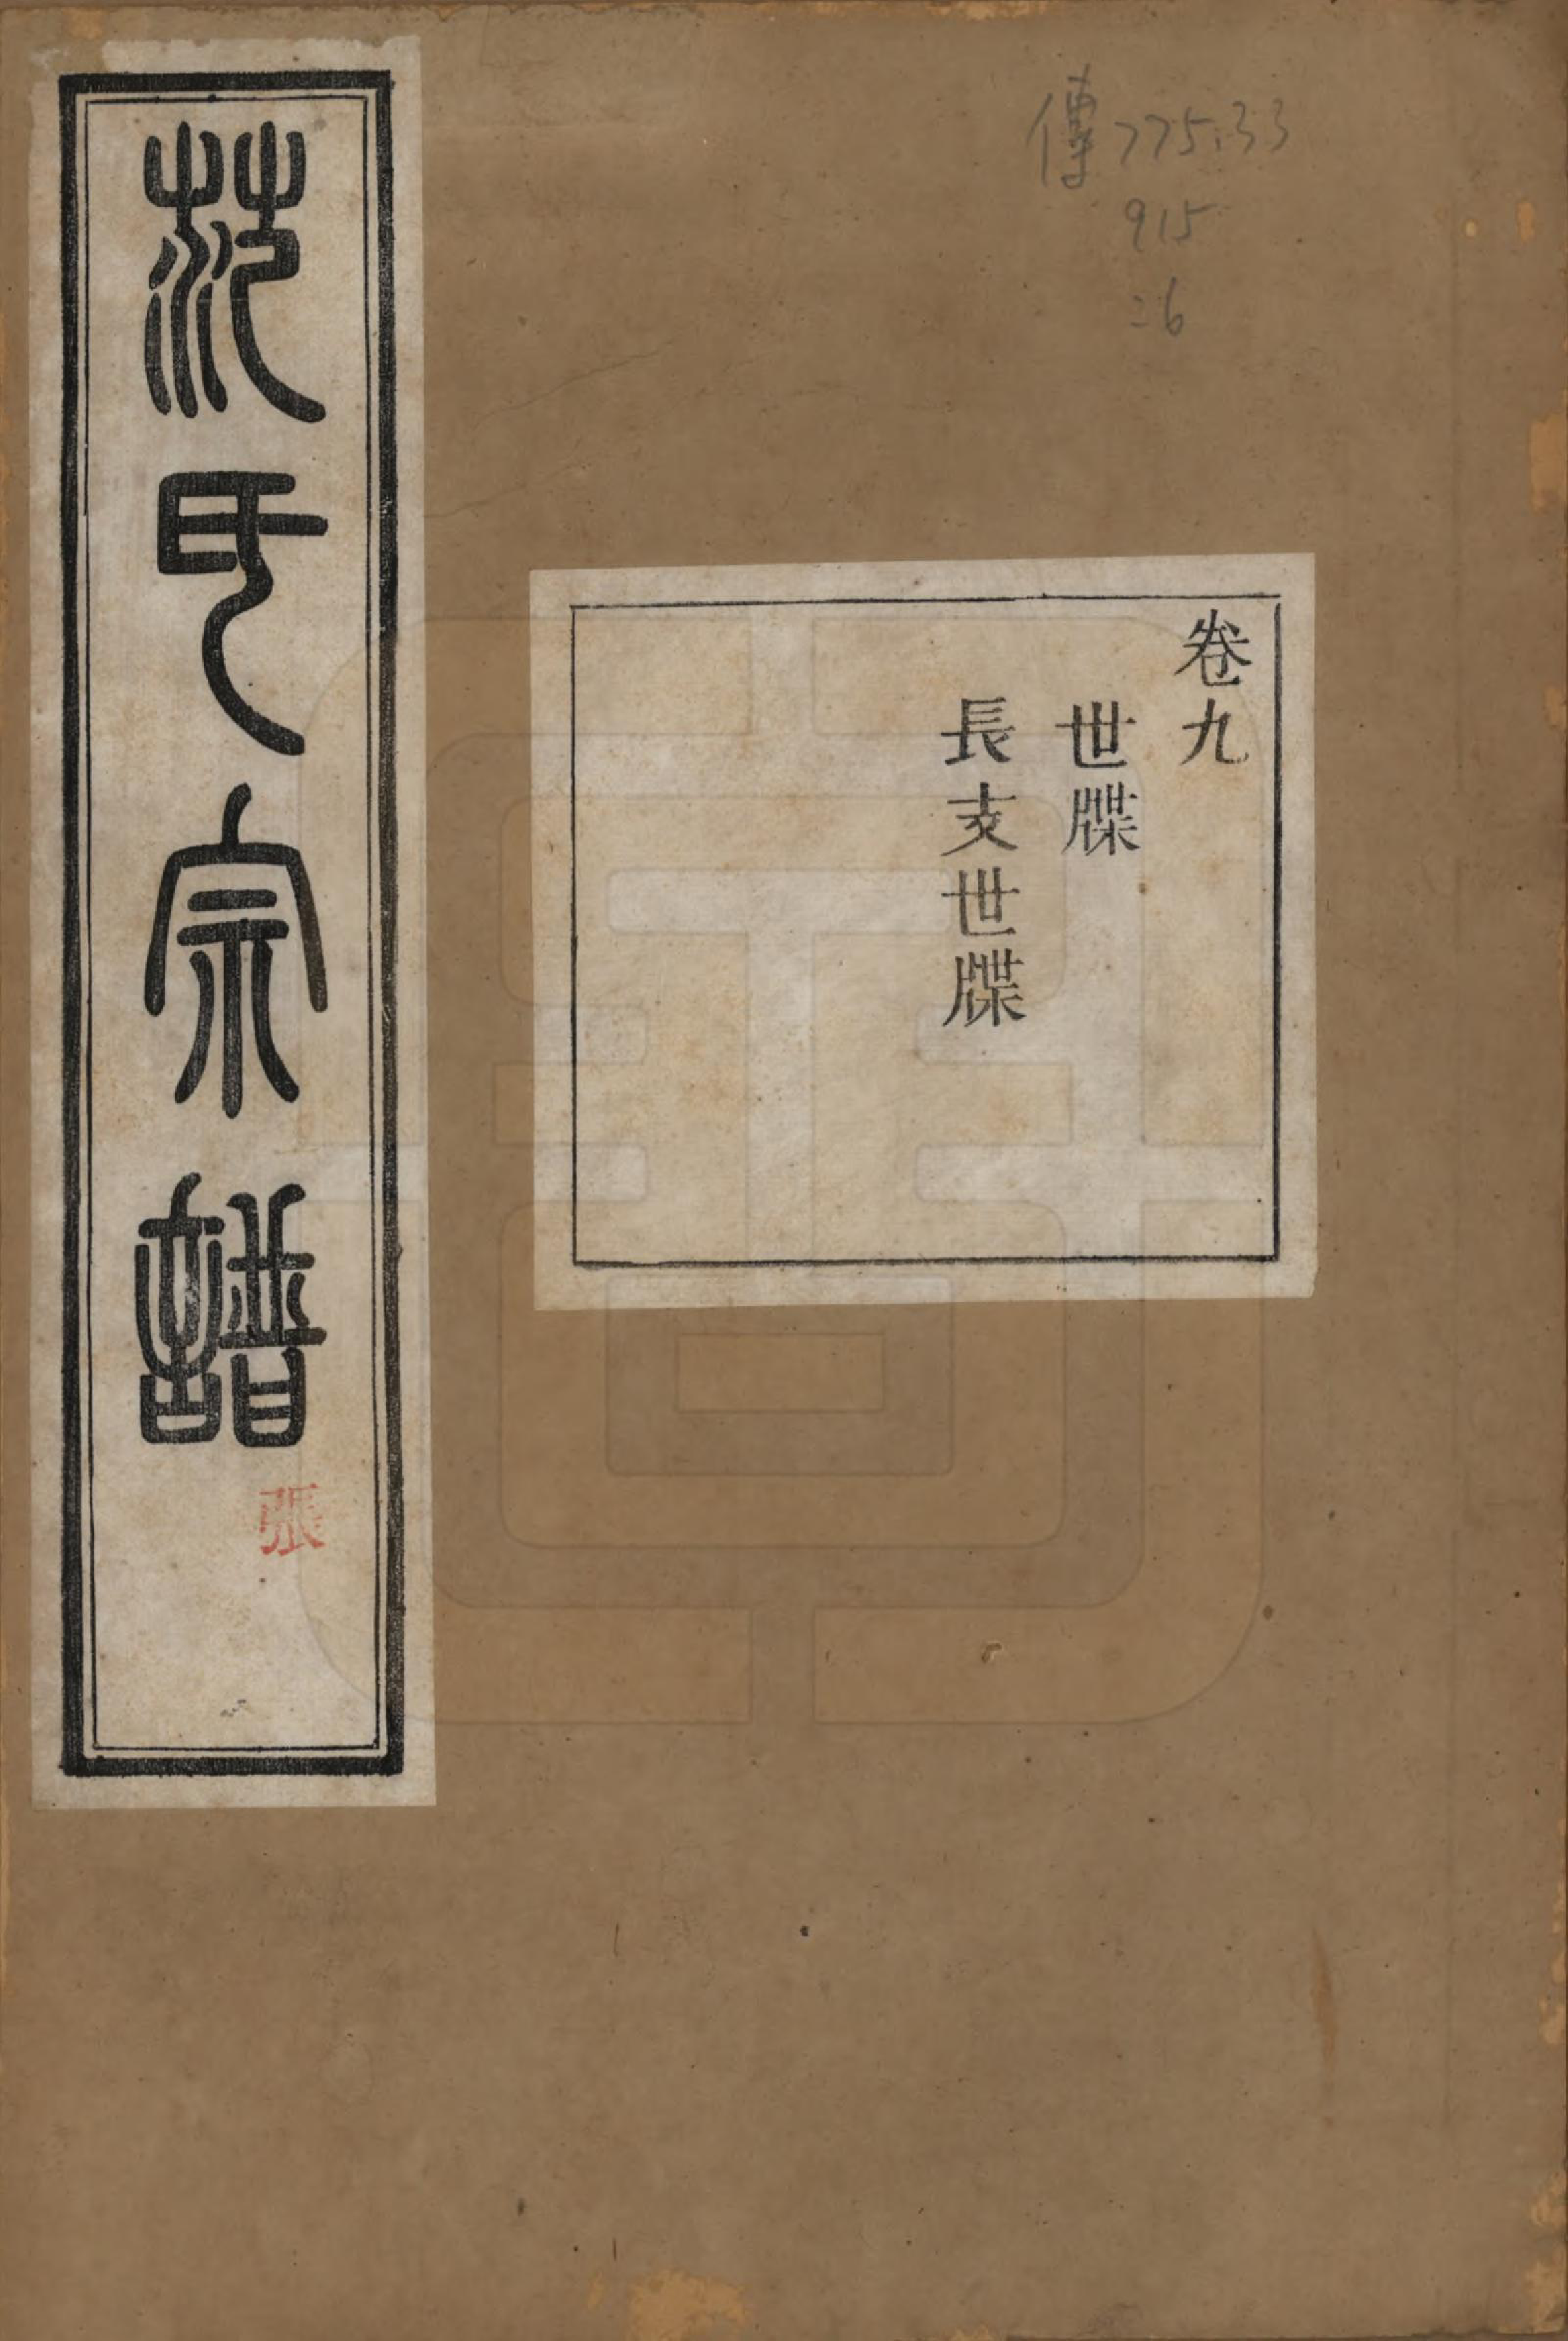 傳775.33
915
卷九
世牒
長支世牒
范氏宗譜
張